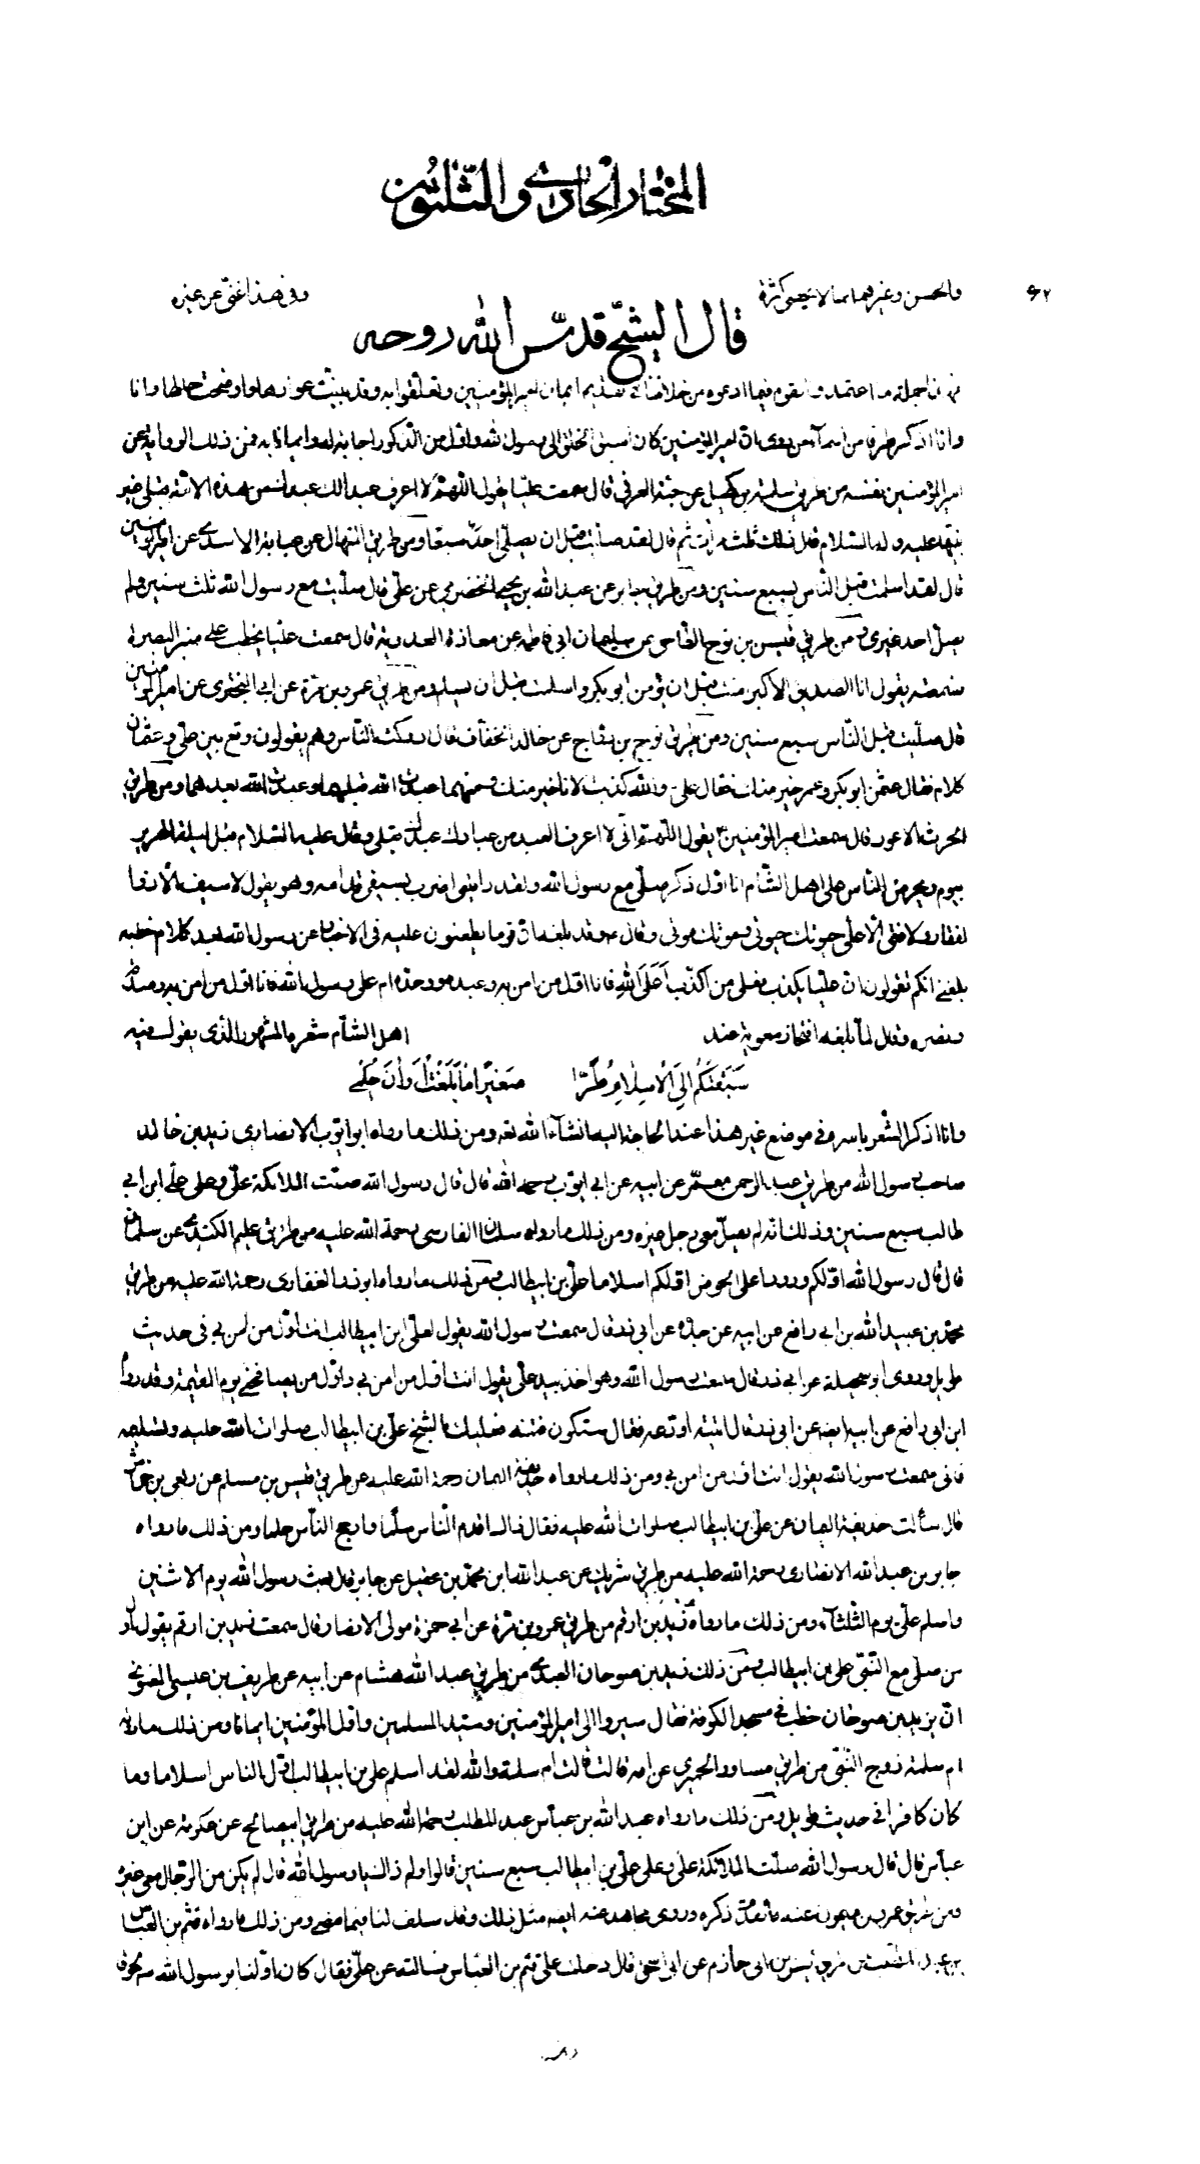 المختار الحادي والثلثون
٤٢
والحسن وغيرهما مما لا يحصى كثرة وفي هذا غنى عن غيره
قال الشيخ قدس الله روحه
جملة ما اعتمده القوم فيما ادعوه من خلافنا في تقديم ايمان امير المؤمنين وتعلقوا به وقد بينت عوارها واوضحت وانا
وانا اذكر طرفا من اسماء من روى ان امير المؤمنين كان اسبق الخلق الى رسول الله واول من الذكور اجابة له وايمانا به فمن ذلك الرواية عن
امير المؤمنين نفسه من طريق سلمة بن كهيل عن حبة العرني قال سمعت عليا يقول اللهم لا اعرف عبدا لك عبدك من هذه الامة قبلي غير
نبيها عليه وله السلام قال ذلك ثلث مرات ثم قال لقد صليت قبل ان يصلي احد سبعا ومن طريق المنهال عن عباية الاسدي عن امير المؤمنين
قال لقد اسلمت قبل الناس بسبع سنين ومن طريق جابر عن عبد الله بن يحيى الحضرمي عن علي قال صليت مع رسول الله ثلث سنين ولم
يصل احد غيري ومن طريق قيس بن نوح الطاحي عن سليمان ابي فاطمة عن معاذة العدوية قال سمعت عليا يخطب على منبر البصرة
سمعته يقول انا الصديق الاكبر امنت قبل ان يؤمن ابو بكر واسلمت قبل ان يسلم ومن طريق عمرو بن مرة عن ابي البختري عن امير المؤمنين
قال صليت قبل الناس سبع سنين ومن طريق نوح بن دراج عن خالد الخفاف قال ادركت الناس وهم يقولون وقع بين علي وعثمان
كلام فقال عثمن ابو بكر وعمر خير منك فقال علي والله كذبت لانا خير منك ومنهما عبدت الله قبلهما وعبدت الله بعدهما ومن طريق
الحرث الاعور قال سمعت امير المؤمنين يقول اللهم اني لا اعرف العبد من عبادك عبدك قبلي وقال عليه السلام قبل ليلة الهرير
بيوم ويحرض الناس على اهل الشام انا اول ذكر صلى مع رسول الله ولقد رايتني اضرب بسيفي قدامه وهو يقول لا سيف الا ذوا
لفقار ولا فتى الا علي حيوتك حيوتي وموتك موتي وقال وقد بلغه ان قوما يطعنون عليه في الاخبار عن رسول الله بعد كلام خطبه
بلغني انكم تقولون ان عليا يكذب فعلى من اكذب اعلى الله فانا اول من امن به وعبده ووحده ام على رسول الله فانا اول من امن به وصدقه
ونصره وقال لما بلغه افتخار معوية عند اهل الشام شعره المشهور الذي يقول فيه
سبقتكم الى الاسلام طرا صغيرا ما بلغت اوان حلمي
وانا اذكر الشعر باسره في موضع غير هذا عند الحاجة اليه انشاء الله تعه ومن ذلك ما رواه ابو ايوب الانصاري زيد بن خالد
صاحب رسول الله من طريق عبد الرحمن معمر عن ابيه عن ابي ايوب رحمه الله قال قال رسول الله صلت الملائكة علي وعلى علي ابن ابي
طالب سبع سنين وذلك انه لم يصل معي رجل غيره ومن ذلك ما رواه سلمان الفارسي رحمة الله عليه من طريق عليم الكندي عن سلمان
قال قال رسول الله اولكم ورودا على الحوض اولكم اسلاما علي بن ابيطالب ومن ذلك ما رواه ابو ذر الغفاري رحمة الله عليه من طريق
محمد بن عبيد الله بن ابي رافع عن ابيه عن جده عن ابي ذر قال سمعت رسول الله يقول لعلي ابن ابيطالب انت اول من امن بي في حديث
طويل وروى ابو سخيلة عن ابي ذر قال سمعت رسول الله وهو اخذ بيد علي يقول انت اول من امن بي واول من يصافحني يوم القيمة وقد رواه
ابن ابي رافع عن ابيه ايضا عن ابي ذر قال اتيته اودعه فقال ستكون فتنة فعليك بالشيخ علي بن ابيطالب صلوات الله عليه وتسليمه
فاني سمعت رسول الله يقول انت اول من امن بي ومن ذلك ما رواه حذيفة اليمان رحمة الله عليه عن طريق قيس بن مسلم عن ربعي بن خراش
قال سألت حذيفة اليمان عن علي بن ابيطالب صلوات الله عليه فقال ذاك اقدم الناس سلما وارجح الناس حلما ومن ذلك ما رواه
جابر بن عبد الله الانصاري رحمة الله عليه من طريق شريك عن عبد الله ابن محمد بن عقيل عن جابر قال بعث رسول الله يوم الاثنين
واسلم علي يوم الثلثاء ومن ذلك ما رواه زيد بن ارقم من طريق عمرو بن مرة عن ابي حمزة مولى الانصار قال سمعت زيد بن ارقم يقول اول
من صلى مع النبي علي بن ابيطالب ومن ذلك زيد بن صوحان العبدي من طريق عبد الله هشام عن ابيه عن طريف بن عيسى الغنوي
ان زيد بن صوحان خطب في مسجد الكوفة فقال سيروا الى امير المؤمنين وسيد المسلمين واول المؤمنين ايمانا ومن ذلك ما روته
ام سلمة زوج النبي من طريق مساور الحميري عن امه قالت قالت ام سلمة والله لقد اسلم علي بن ابيطالب اول الناس اسلاما وما
كان كافرا في حديث طويل ومن ذلك ما رواه عبد الله بن عباس عبد المطلب رحمة الله عليه من طريق ابي صالح عن عكرمة عن ابن
عباس قال قال رسول الله صلت الملائكة علي وعلى علي بن ابيطالب سبع سنين قالوا ولم ذاك يا رسول الله قال لم يكن من الرجال معي غيره
ومن طريق عمرو بن ميمون عنه ما تقدم ذكره وروى مجاهد عنه ايضه مثل ذلك وقد سلف لنا فيما مضى ومن ذلك ما رواه قثم بن العباس
بن عبد المطلب من طريق قيس بن ابي حازم عن ابي اسحق قال دخلت على قثم بن العباس فسالته عن علي فقال كان اولنا برسول الله